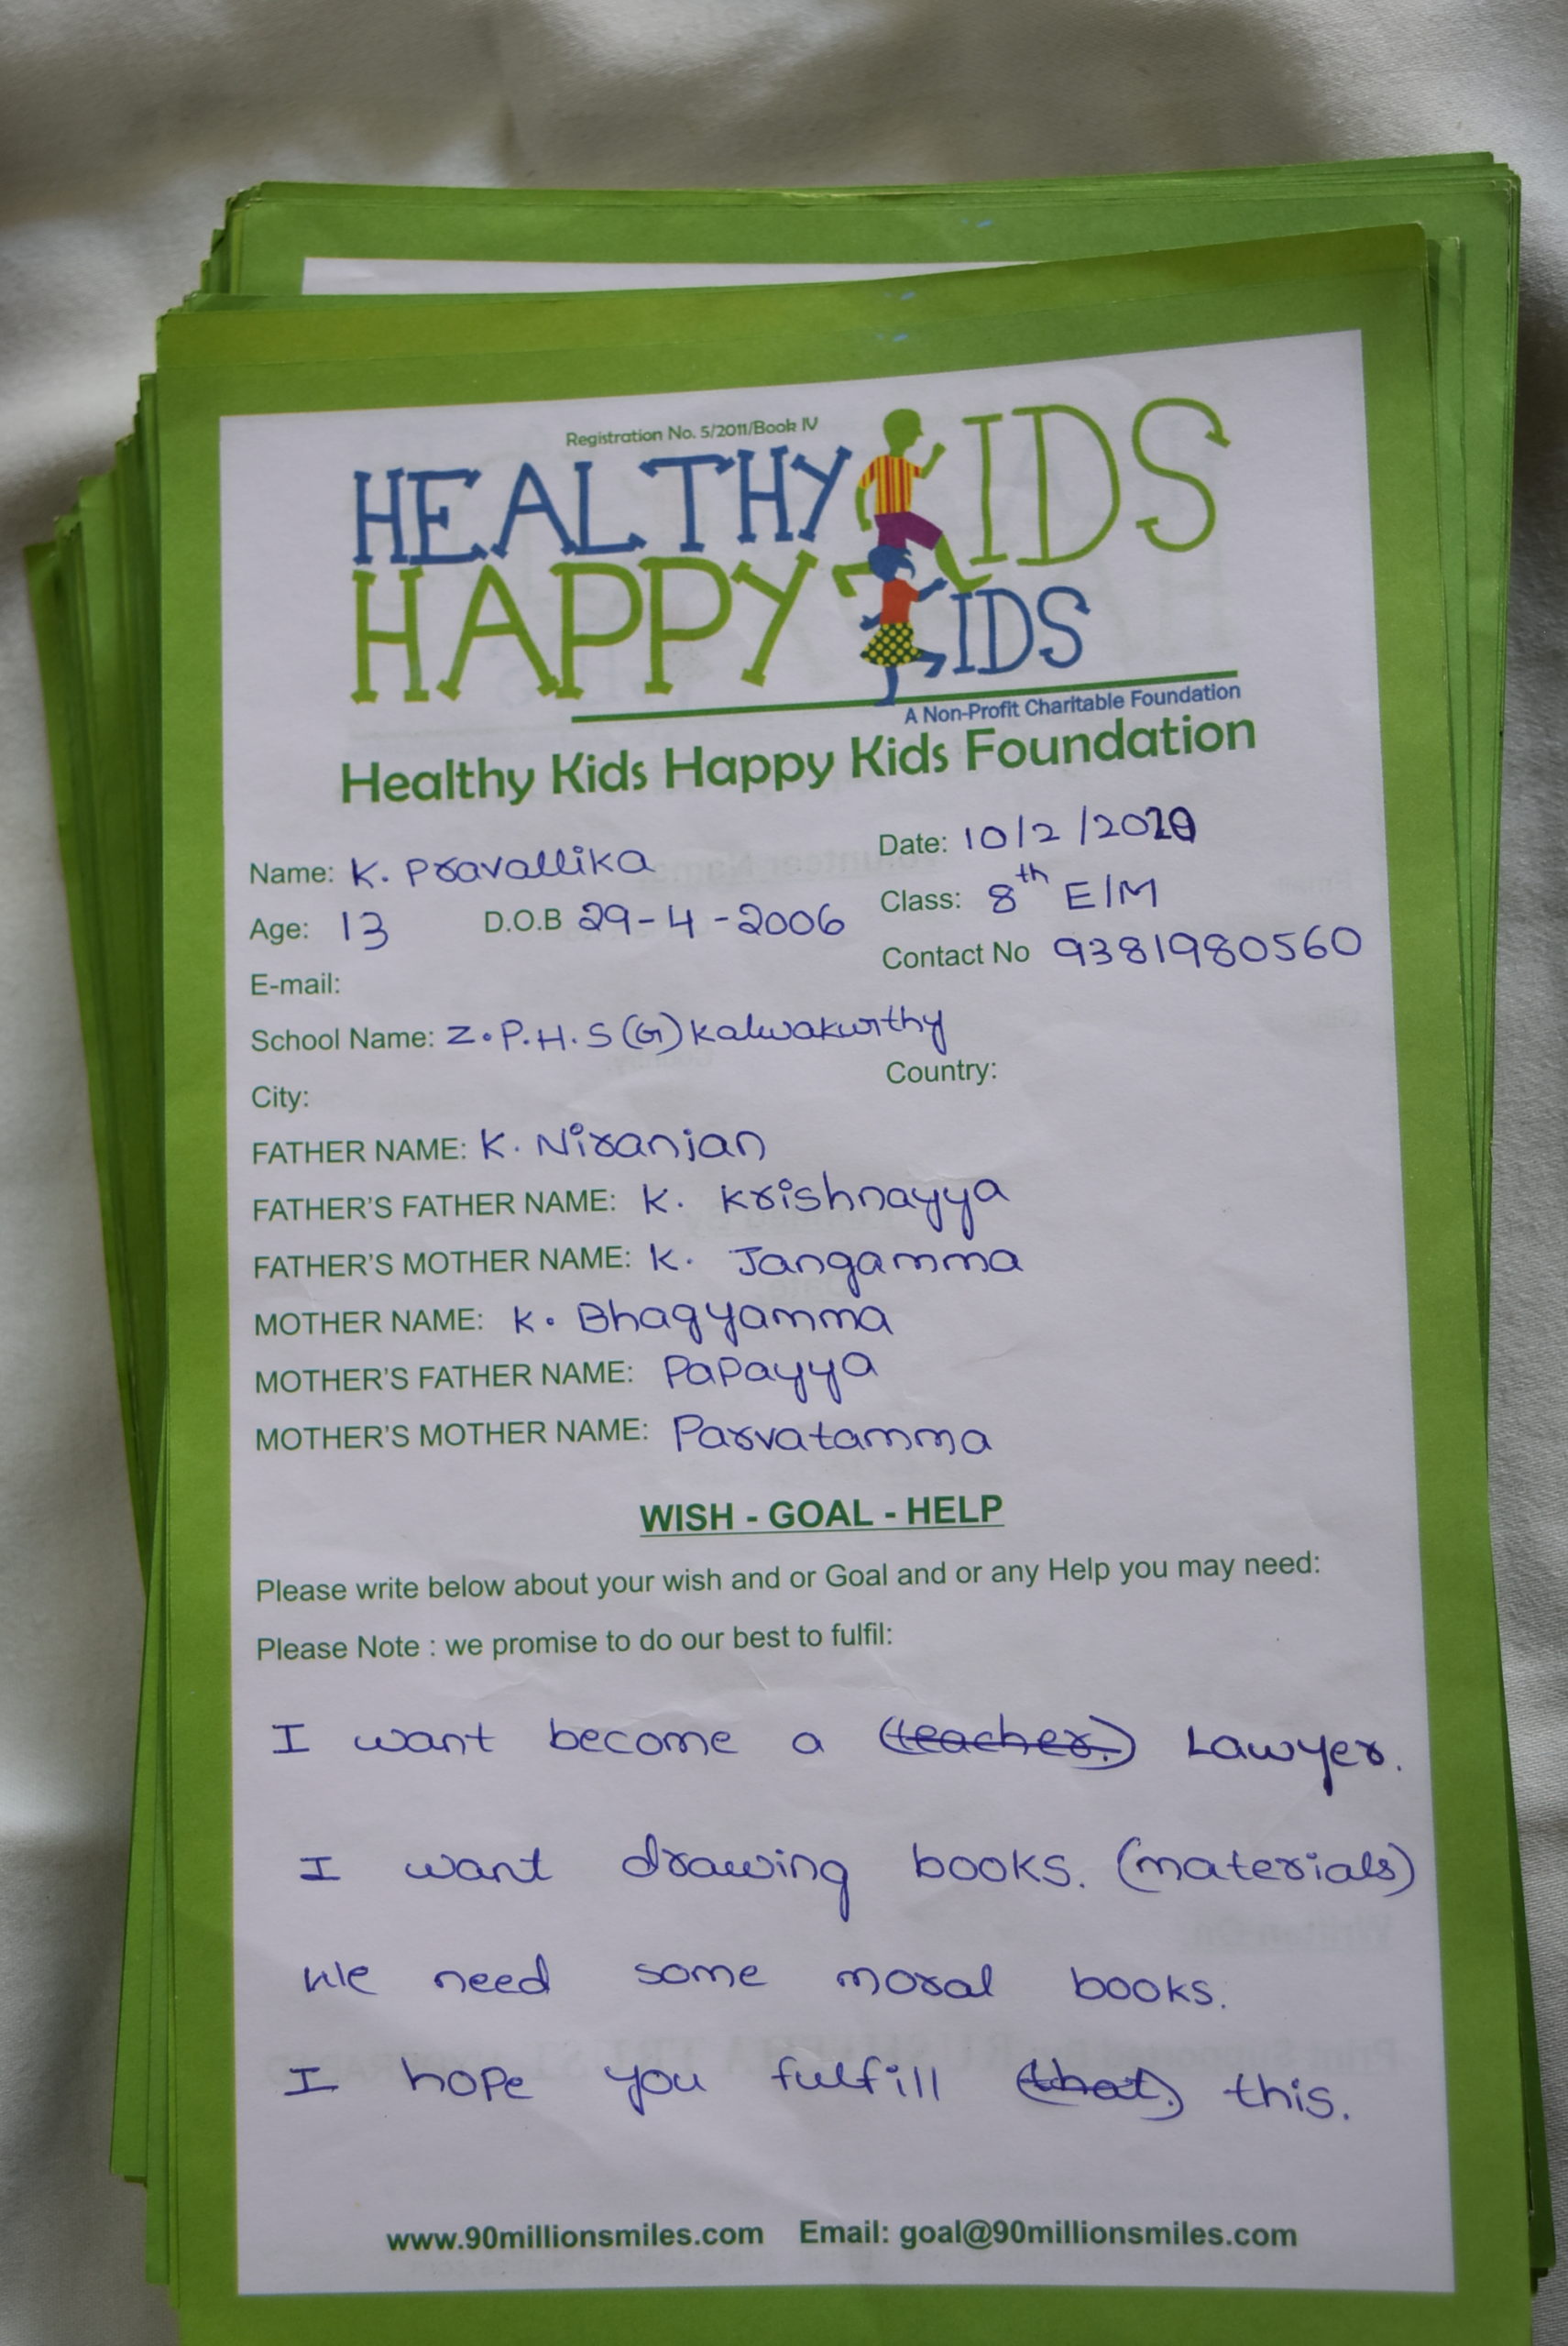 Registration No. 5/2011/Book IV
HEALTHY KIDS
HAPPY KIDS
A Non-Profit Charitable Foundation
Healthy Kids Happy Kids Foundation
Name: K. Pravallika Date: 10/2/2020
Age: 13 D.O.B 29-4-2006 Class: 8th E/M
E-mail: Contact No 9381980560
School Name: Z.P.H.S(G) kalwakurthy
City: Country:
FATHER NAME: K. Niranjan
FATHER'S FATHER NAME: K. Krishnayya
FATHER'S MOTHER NAME: K. Jangamma
MOTHER NAME: K. Bhagyamma
MOTHER'S FATHER NAME: Papayya
MOTHER'S MOTHER NAME: Parvatamma
WISH - GOAL - HELP
Please write below about your wish and or Goal and or any Help you may need:
Please Note : we promise to do our best to fulfil:
I want become a (teacher.) Lawyer.
I want drawing books. (materials)
We need some moral books.
I hope you fulfill (that.) this.
www.90millionsmiles.com Email: goal@90millionsmiles.com